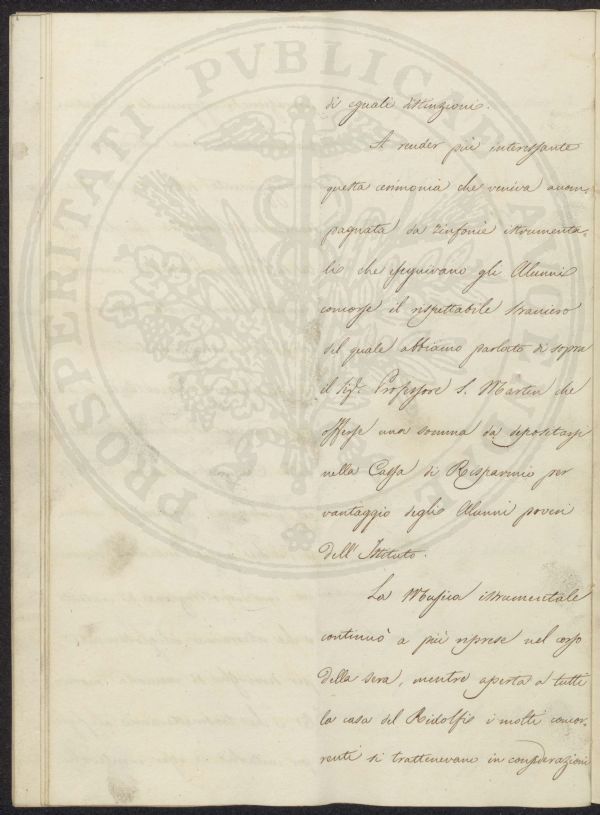 di eguali distinzioni.
A render più interessante
questa cerimonia che veniva accom-
pagnata da Zinfonie istrumenta-
li che eseguivano gli Alunni
concorse il rispettabile straniero
del quale abbiamo parlato di sopra
il Sig.r Professore S. Martin che
offerse una somma da depositarsi
nella Cassa di Risparmio per
vantaggio degli Alunni poveri
dell' Istituto.
La Musica istrumentale
continuò a più riprese nel corso
della sera, mentre aperta a tutti
la casa del Ridolfi i molti concor-
renti si trattenevano in considerazioni
PROSPERITATI PVBLICAE